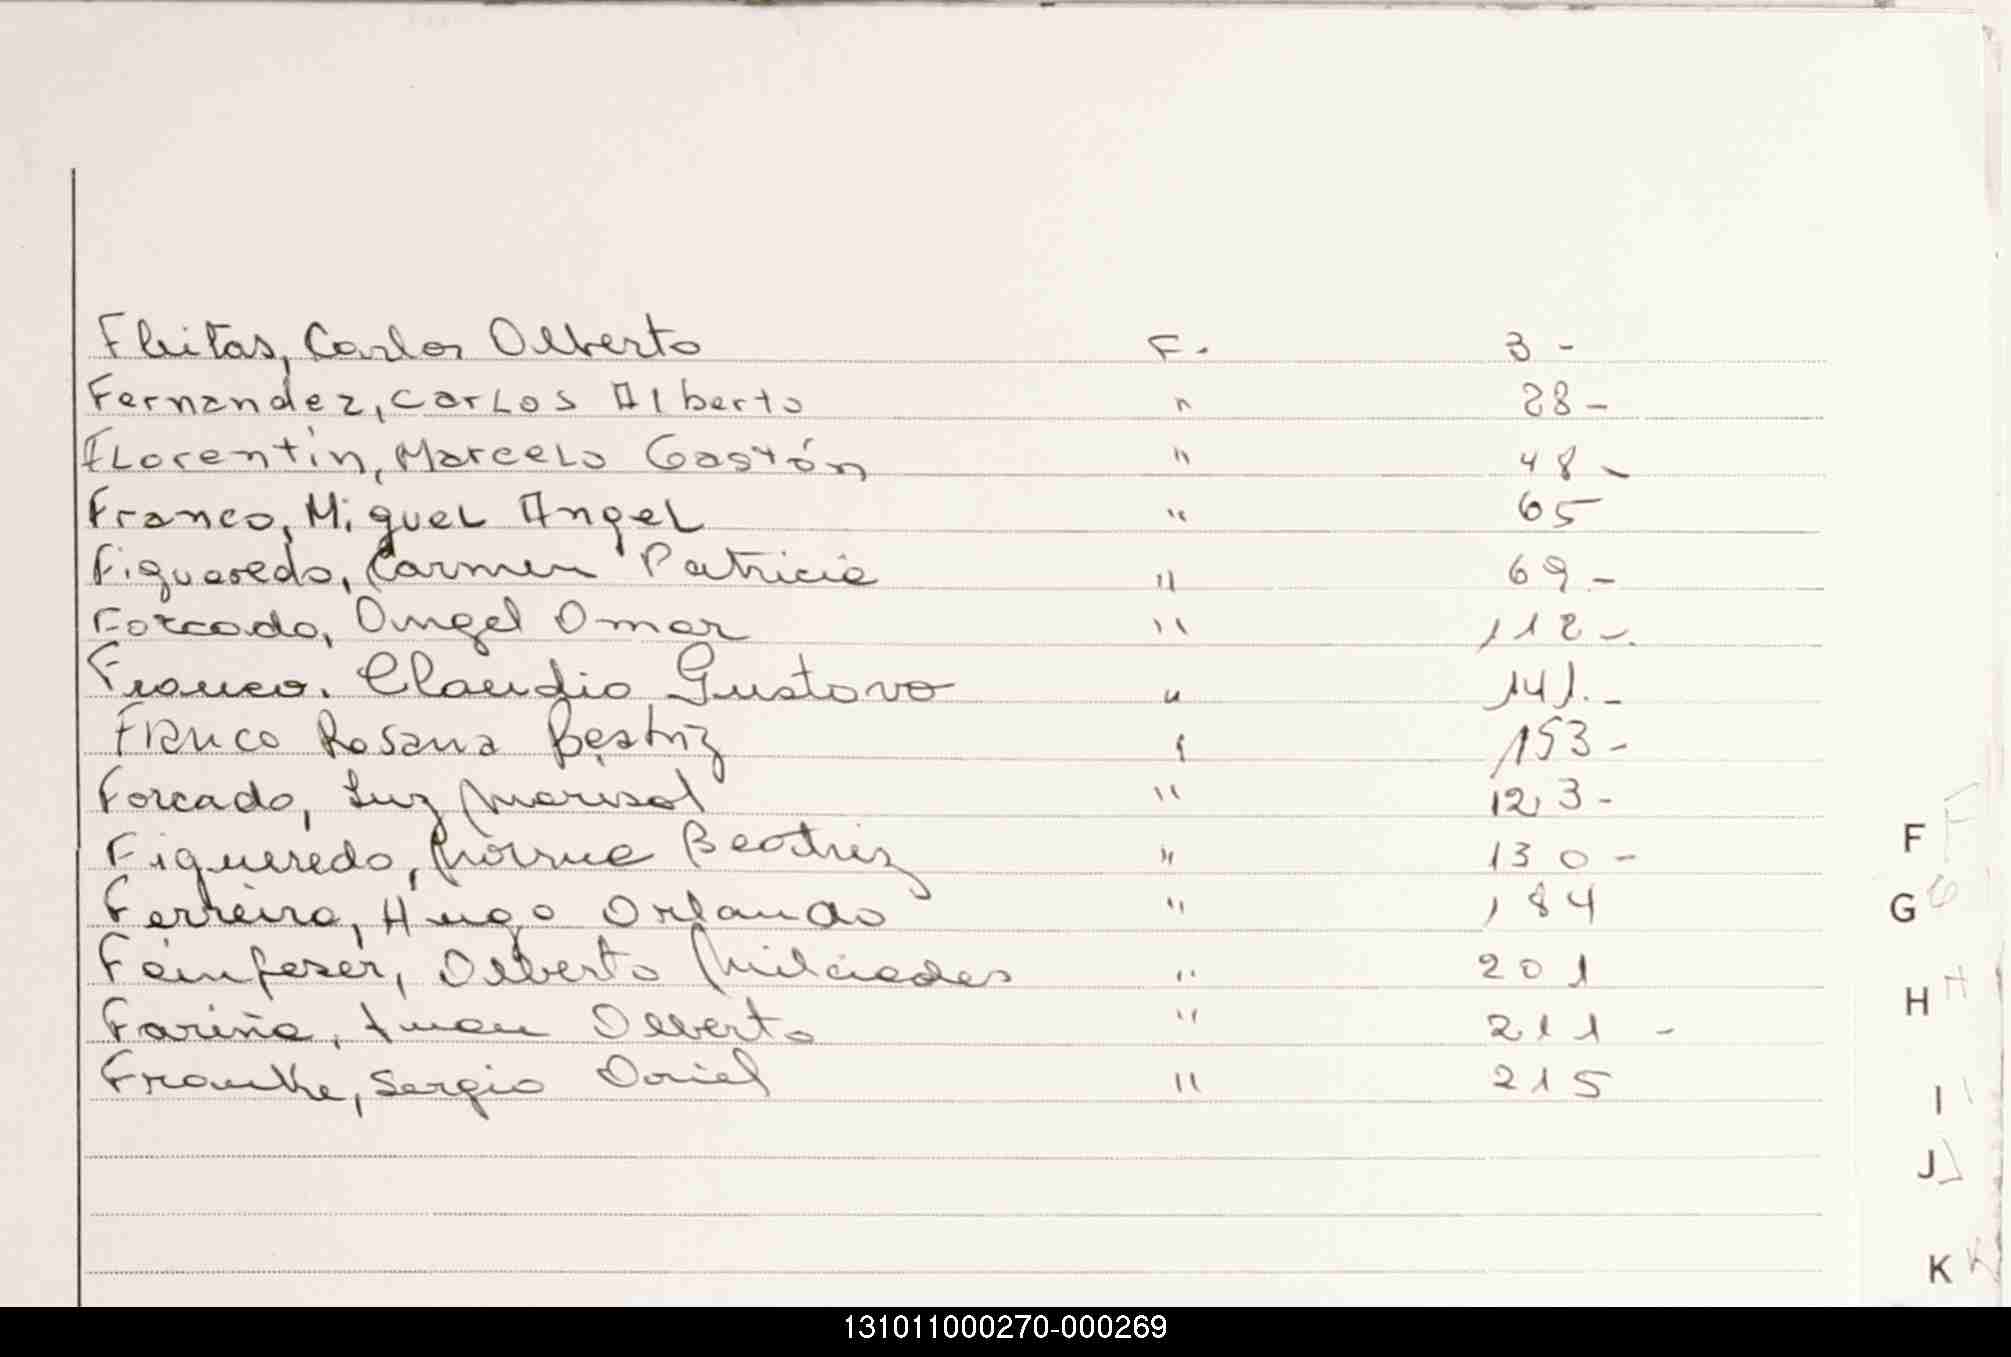 Fleitas, Carlos Alberto F. 3 -
Fernandez, Carlos Alberto " 28 -
Florentín, Marcelo Gastón " 48 -
Franco, Miguel Angel " 65
Figueredo, Carmen Patricia " 69 -
Forcado, Angel Omar " 112 -.
Franco. Claudio Gustavo " 141. -
Franco Rosana Beatriz " 153 -
Forcado, Luz Marisol " 123 -
Figueredo, Beatriz " 130 -
Ferreira, Hugo Orlando " 184
Alberto Milciades " 201
Fariña, Juan Alberto " 211 -
Franke, Sergio Oriel " 215
F F
G G
H H
I I
J J
K K
131011000270-000269